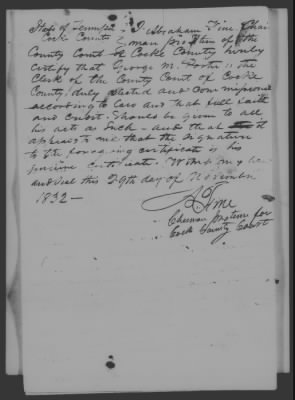 State of Tennessee } I Abraham Fine Chair
Cocke County } man protem of the
County Court of Cocke County hereby
certify that George M. Porter is the
Clerk of the County Court of Cocke
County, duly elected and commissioned
according to Law and that full faith
and credit should be given to all
his acts as such - and that it
appears to me that the signature
to the foregoing certificate is his
genuine certificate. Witness my hand
and seal this 29th day of November
1832 -
A. Fine
Chairman protem for
Cocke County Court